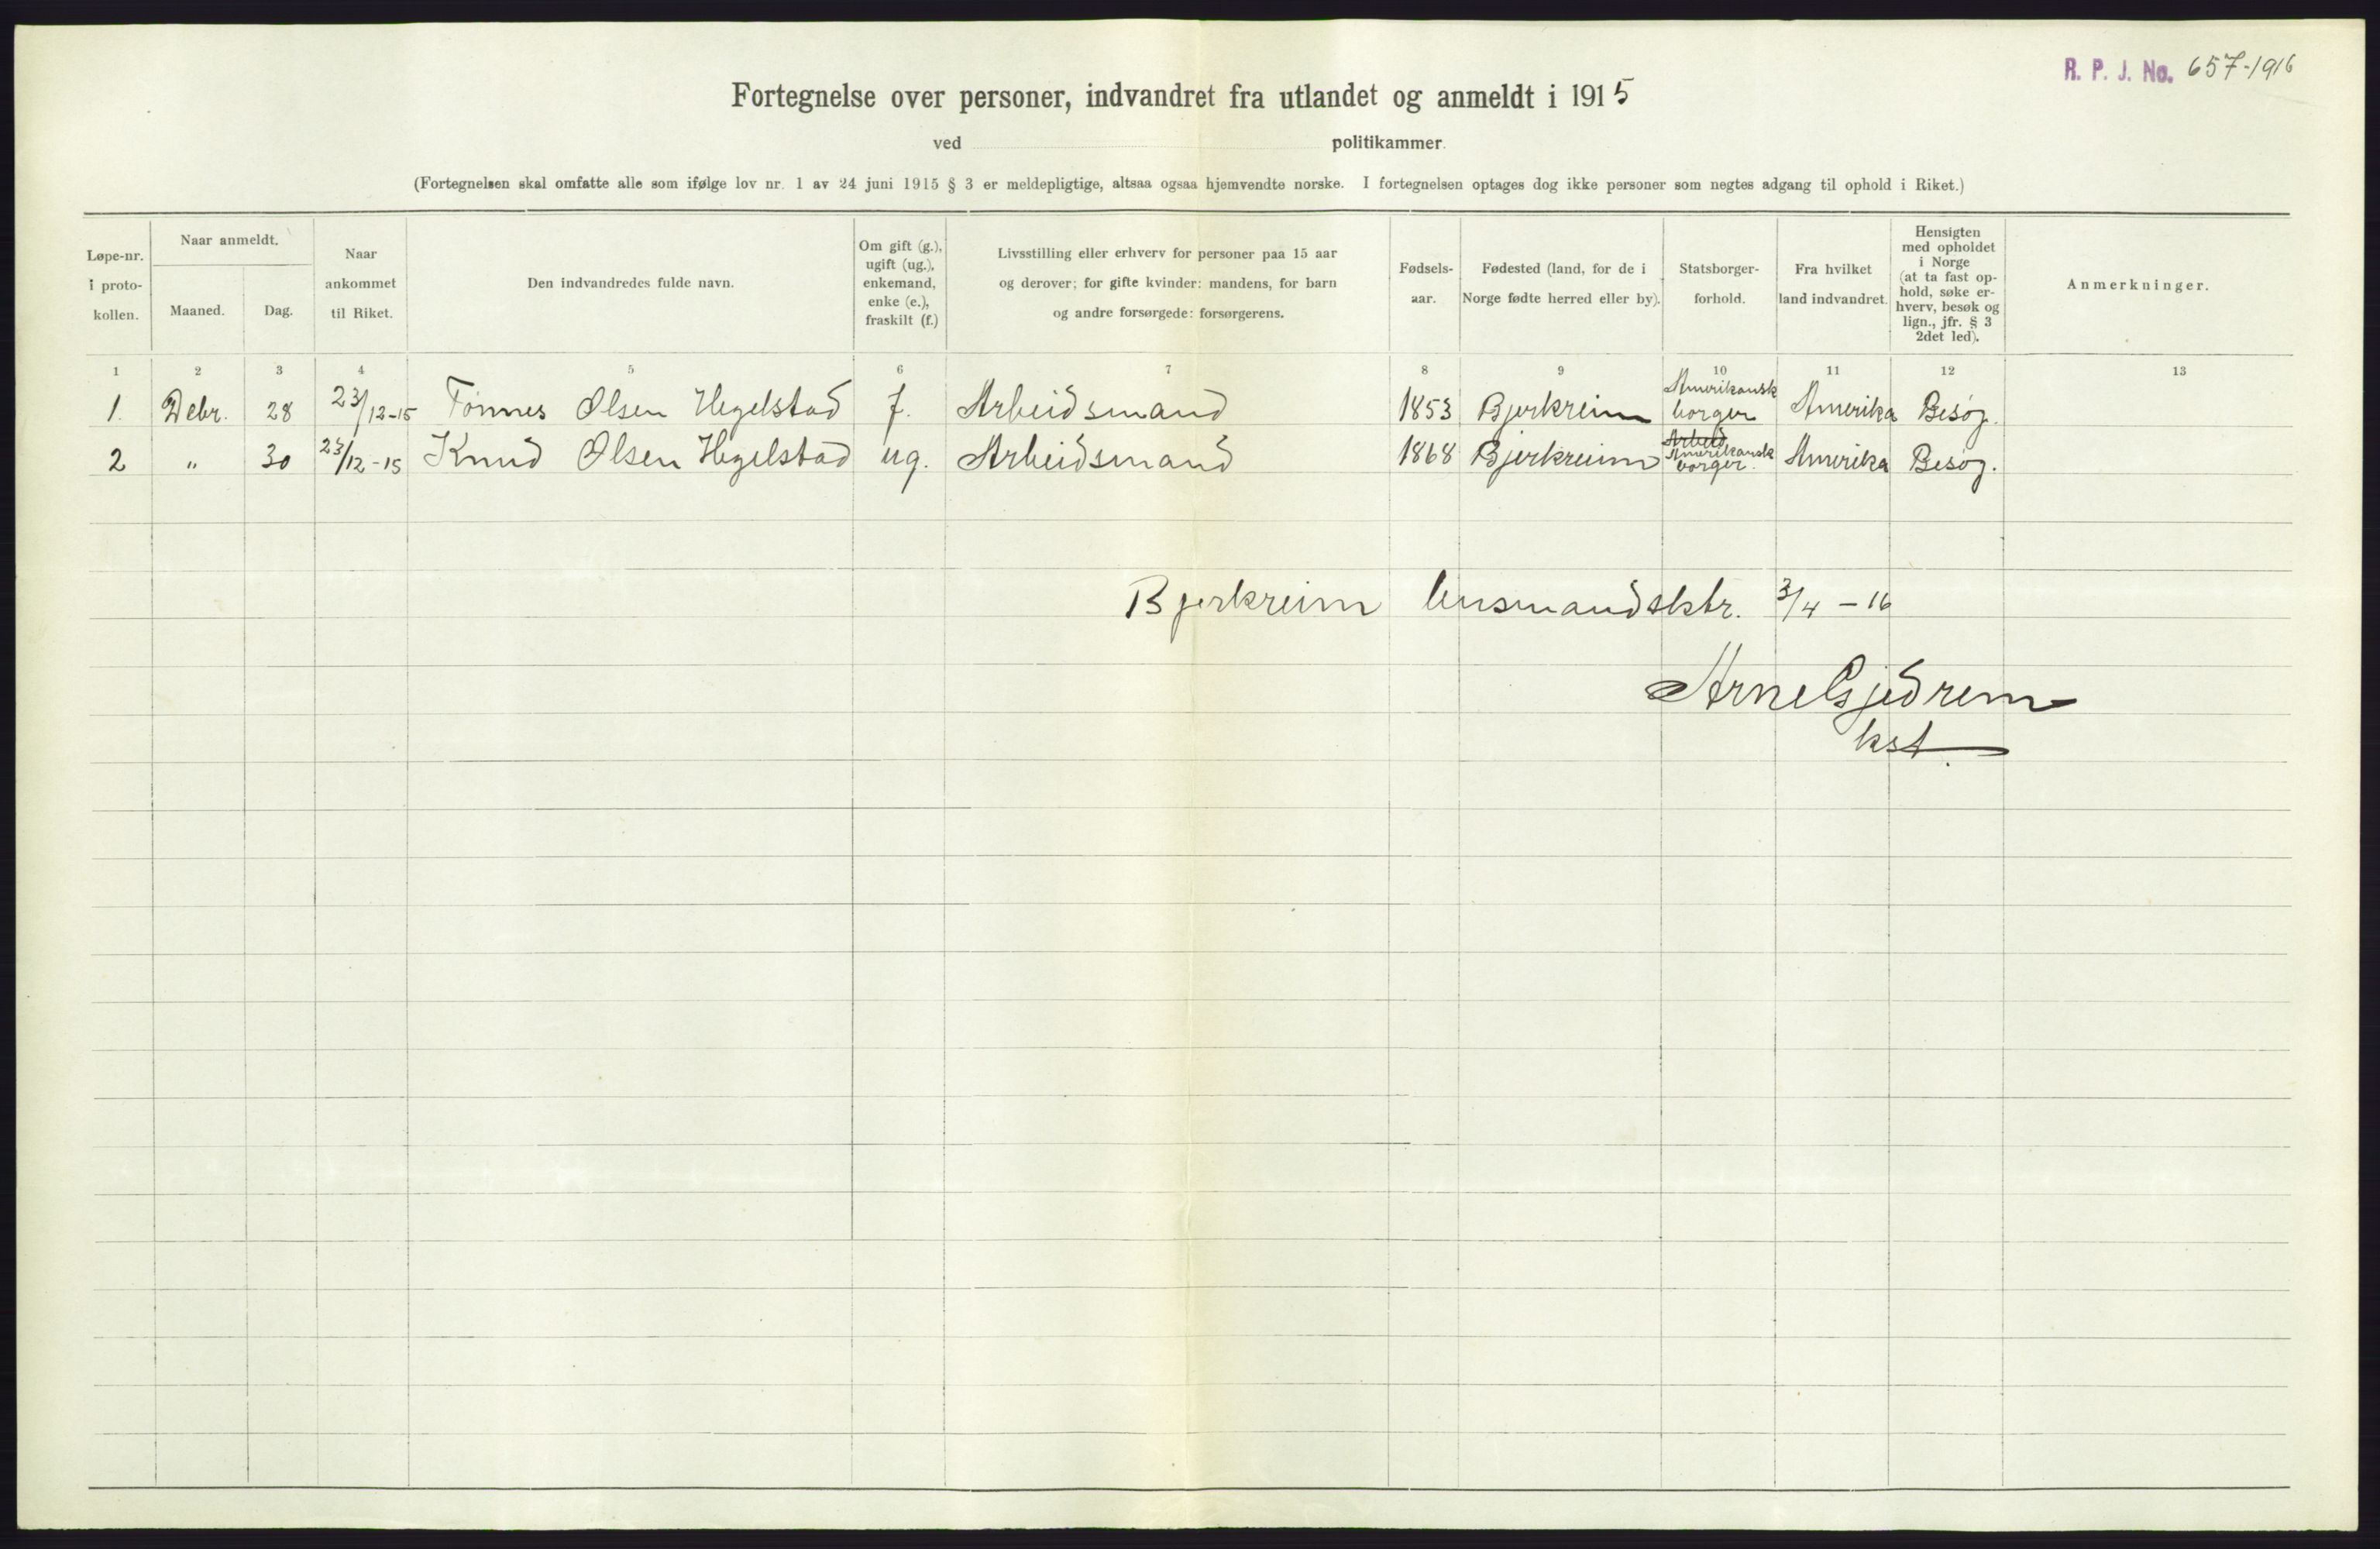 R. P. J. No. 657-1916
Fortegnelse over personer, indvandret fra utlandet og anmeldt i 1915
ved politikammer.
(Fortegnelsen skal omfatte alle som ifølge lov nr. 1 av 24 juni 1915 § 3 er meldepligtige, altsaa ogsaa hjemvendte norske. I fortegnelsen optages dog ikke personer som negtes adgang til ophold i Riket.)
Løpe-nr.
i proto-
kollen.
Naar anmeldt.
Maaned. Dag.
Naar
ankommet
til Riket.
Den indvandredes fulde navn.
Om gift (g.),
ugift (ug.),
enkemand,
enke (e.),
fraskilt (f.)
Livsstilling eller erhverv for personer paa 15 aar
og derover; for gifte kvinder: mandens, for barn
og andre forsørgede: forsørgerens.
Fødsels-
aar.
Fødested (land, for de i
Norge fødte herred eller by).
Statsborger-
forhold.
Fra hvilket
land indvandret.
Hensigten
med opholdet
i Norge
(at ta fast op-
hold, søke er-
hverv, besøk og
lign., jfr. § 3
2det led).
Anmerkninger.
1 2 3 4 5 6 7 8 9 10 11 12 13
1. Debr. 28 23/12-15 Tønnes Olsen Hegelstad f. Arbeidsmand 1853 Bjerkreim Amerikansk borger Amerika Besøg.
2 " 30 23/12-15 Knud Olsen Hegelstad ug. Arbeidsmand 1868 Bjerkreim Arbeid Amerikansk borger. Amerika Besøg.
Bjerkreim lensmandsktr. 3/4 - 16
Arne Gjedrem
kst.